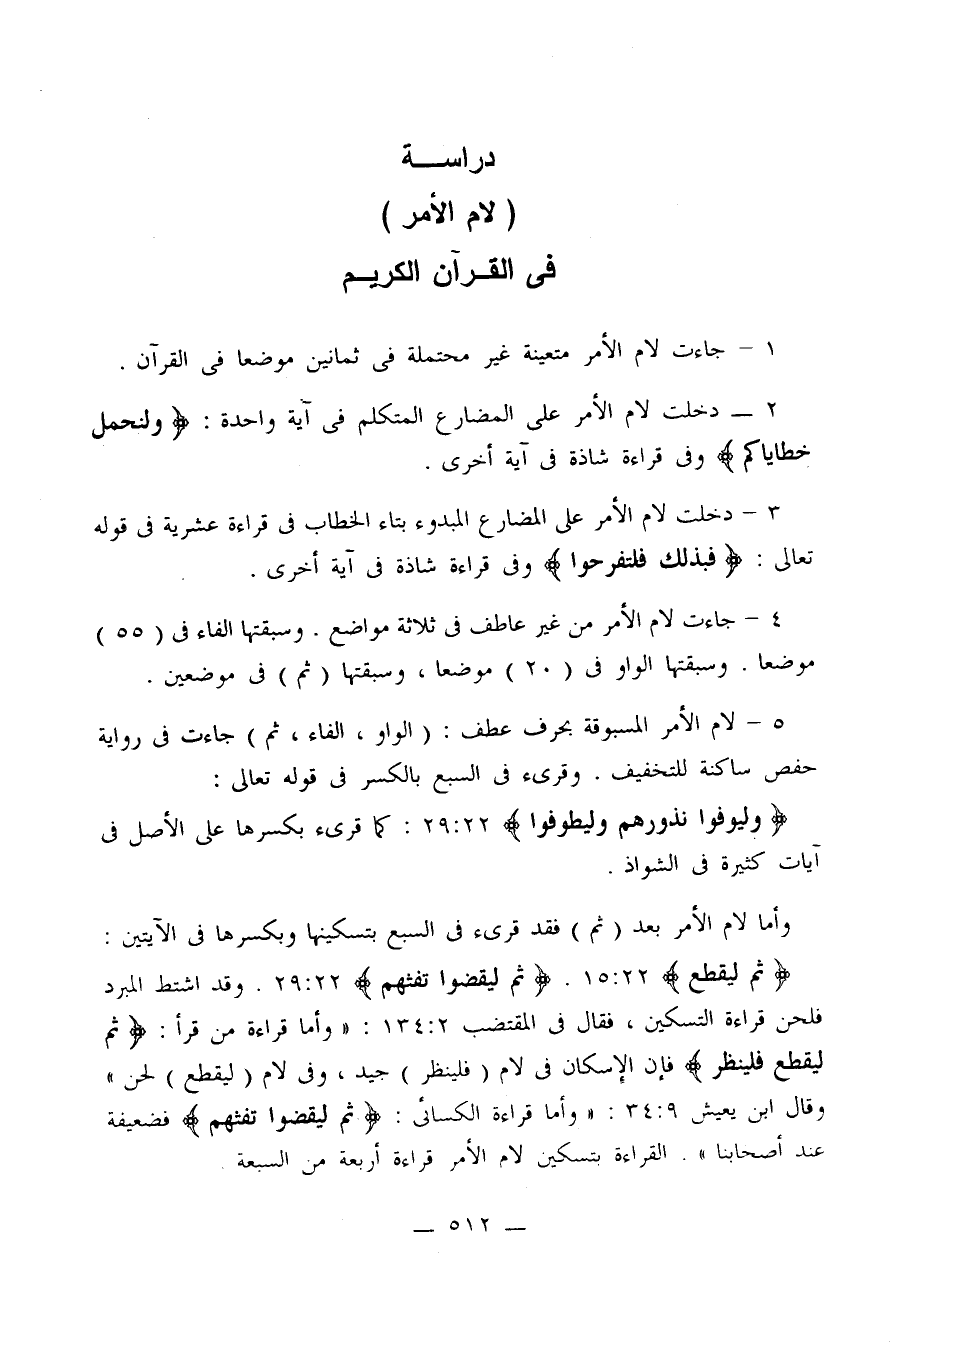 دراســـة
( لام الأمر )
فى القـرآن الكريـم
١ – جاءت لام الأمر متعينة غير محتملة فى ثمانين موضعا فى القرآن .
٢ ــ دخلت لام الأمر على المضارع المتكلم فى آية واحدة : ﴿ ولنحمل
خطاياكم ﴾ وفى قراءة شاذة فى آية أخرى .
٣ – دخلت لام الأمر على المضارع المبدوء بتاء الخطاب فى قراءة عشرية فى قوله
تعالى : ﴿ فبذلك فلتفرحوا ﴾ وفى قراءة شاذة فى آية أخرى .
٤ – جاءت لام الأمر من غير عاطف فى ثلاثة مواضع . وسبقتها الفاء فى ( ٥٥ )
موضعا . وسبقتها الواو فى ( ٢٠ ) موضعا ، وسبقتها ( ثم ) فى موضعين .
٥ – لام الأمر المسبوقة بحرف عطف : ( الواو ، الفاء ، ثم ) جاءت فى رواية
حفص ساكنة للتخفيف . وقرىء فى السبع بالكسر فى قوله تعالى :
﴿ وليوفوا نذورهم وليطوفوا ﴾ ٢٩:٢٢ : كما قرىء بكسرها على الأصل فى
آيات كثيرة فى الشواذ .
وأما لام الأمر بعد ( ثم ) فقد قرىء فى السبع بتسكينها وبكسرها فى الآيتين :
﴿ ثم ليقطع ﴾ ١٥:٢٢ . ﴿ ثم ليقضوا تفثهم ﴾ ٢٩:٢٢ . وقد اشتط المبرد
فلحن قراءة التسكين ، فقال فى المقتضب ١٣٤:٢ : « وأما قراءة من قرأ : ﴿ ثم
ليقطع فلينظر ﴾ فإن الإسكان فى لام ( فلينظر ) جيد ، وفى لام ( ليقطع ) لحن »
وقال ابن يعيش ٣٤:٩ : « وأما قراءة الكسائى : ﴿ ثم ليقضوا تفثهم ﴾ فضعيفة
عند أصحابنا » . القراءة بتسكين لام الأمر قراءة أربعة من السبعة .
ــ ٥١٢ ــ